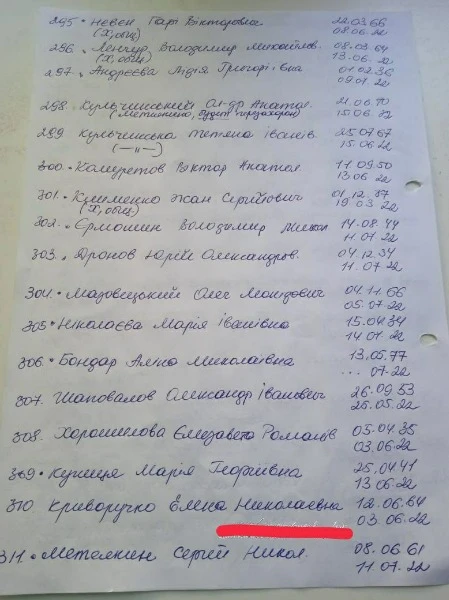 295. Невен Гарі Вікторович 22.03.66
(Х, обл) 08.06.22
296. Ленгур Володимир Михайлов. 08.03.64
(Х, обл) 13.06.22
297. Андрєєва Лідія Григорівна 01.02.36
09.01.22
298. Кульчинський Ол-др Анатол. 21.00.70
15.06.22
299. Кульчинська Тетяна Іванів. 25.07.67
(—"—) 15.06.22
300. Віктор Анатол. 11.09.50
13.06.22
301. Клименко Жан Сергійович 01.12.87
(Х, обл) 19.03.22
302. Єрмошин Володимир Микол 14.08.44
11.07.22
303. Дронов Юрій Олександров. 04.12.34
11.07.22
304. Мазовецький Олег Леонідович 04.11.66
05.07.22
305. Ніколаєва Марія Іванівна 15.04.34
14.07.22
306. Бондар Алла Миколаївна 13.05.77
... 07.22
307. Шаповалов Олександр Іванович 26.09.53
26.05.22
308. Хорошилова Єлізавета Романів 05.04.35
03.06.22
309. Куниця Марія Георгіївна 25.04.41
13.06.22
310 Криворучко Елена Николаевна 12.06.64
03.06.22
311. Метелкин Сергій Никол. 08.06.61
11.07.22